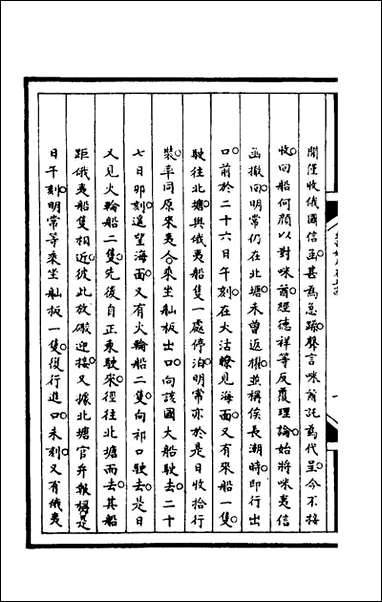 聞僅收俄國信函甚為急躁聲言咪酋託為代呈今不接
收回船何顏以對咪酋經德祥等反覆理論始將咪夷信
函撤回明常仍在北塘未曾返棹並稱俟長潮時即行出
口前於二十六日午刻在大沽瞭見海面又有來船一隻
駛往北塘與俄夷船隻一處停泊明常亦於是日收拾行
裝率同原來夷合乘坐舢板出口向該國大船駛去二十
七日卯刻遙望海面又有火輪船二隻向祁口駛去是日
又見火輪船二隻先後自正東駛來徑往北塘而去其船
距俄夷船隻相近彼此放礮迎接又據北塘官弁報稱是
日午刻明常等乘坐舢板一隻復行進口未刻又有俄夷